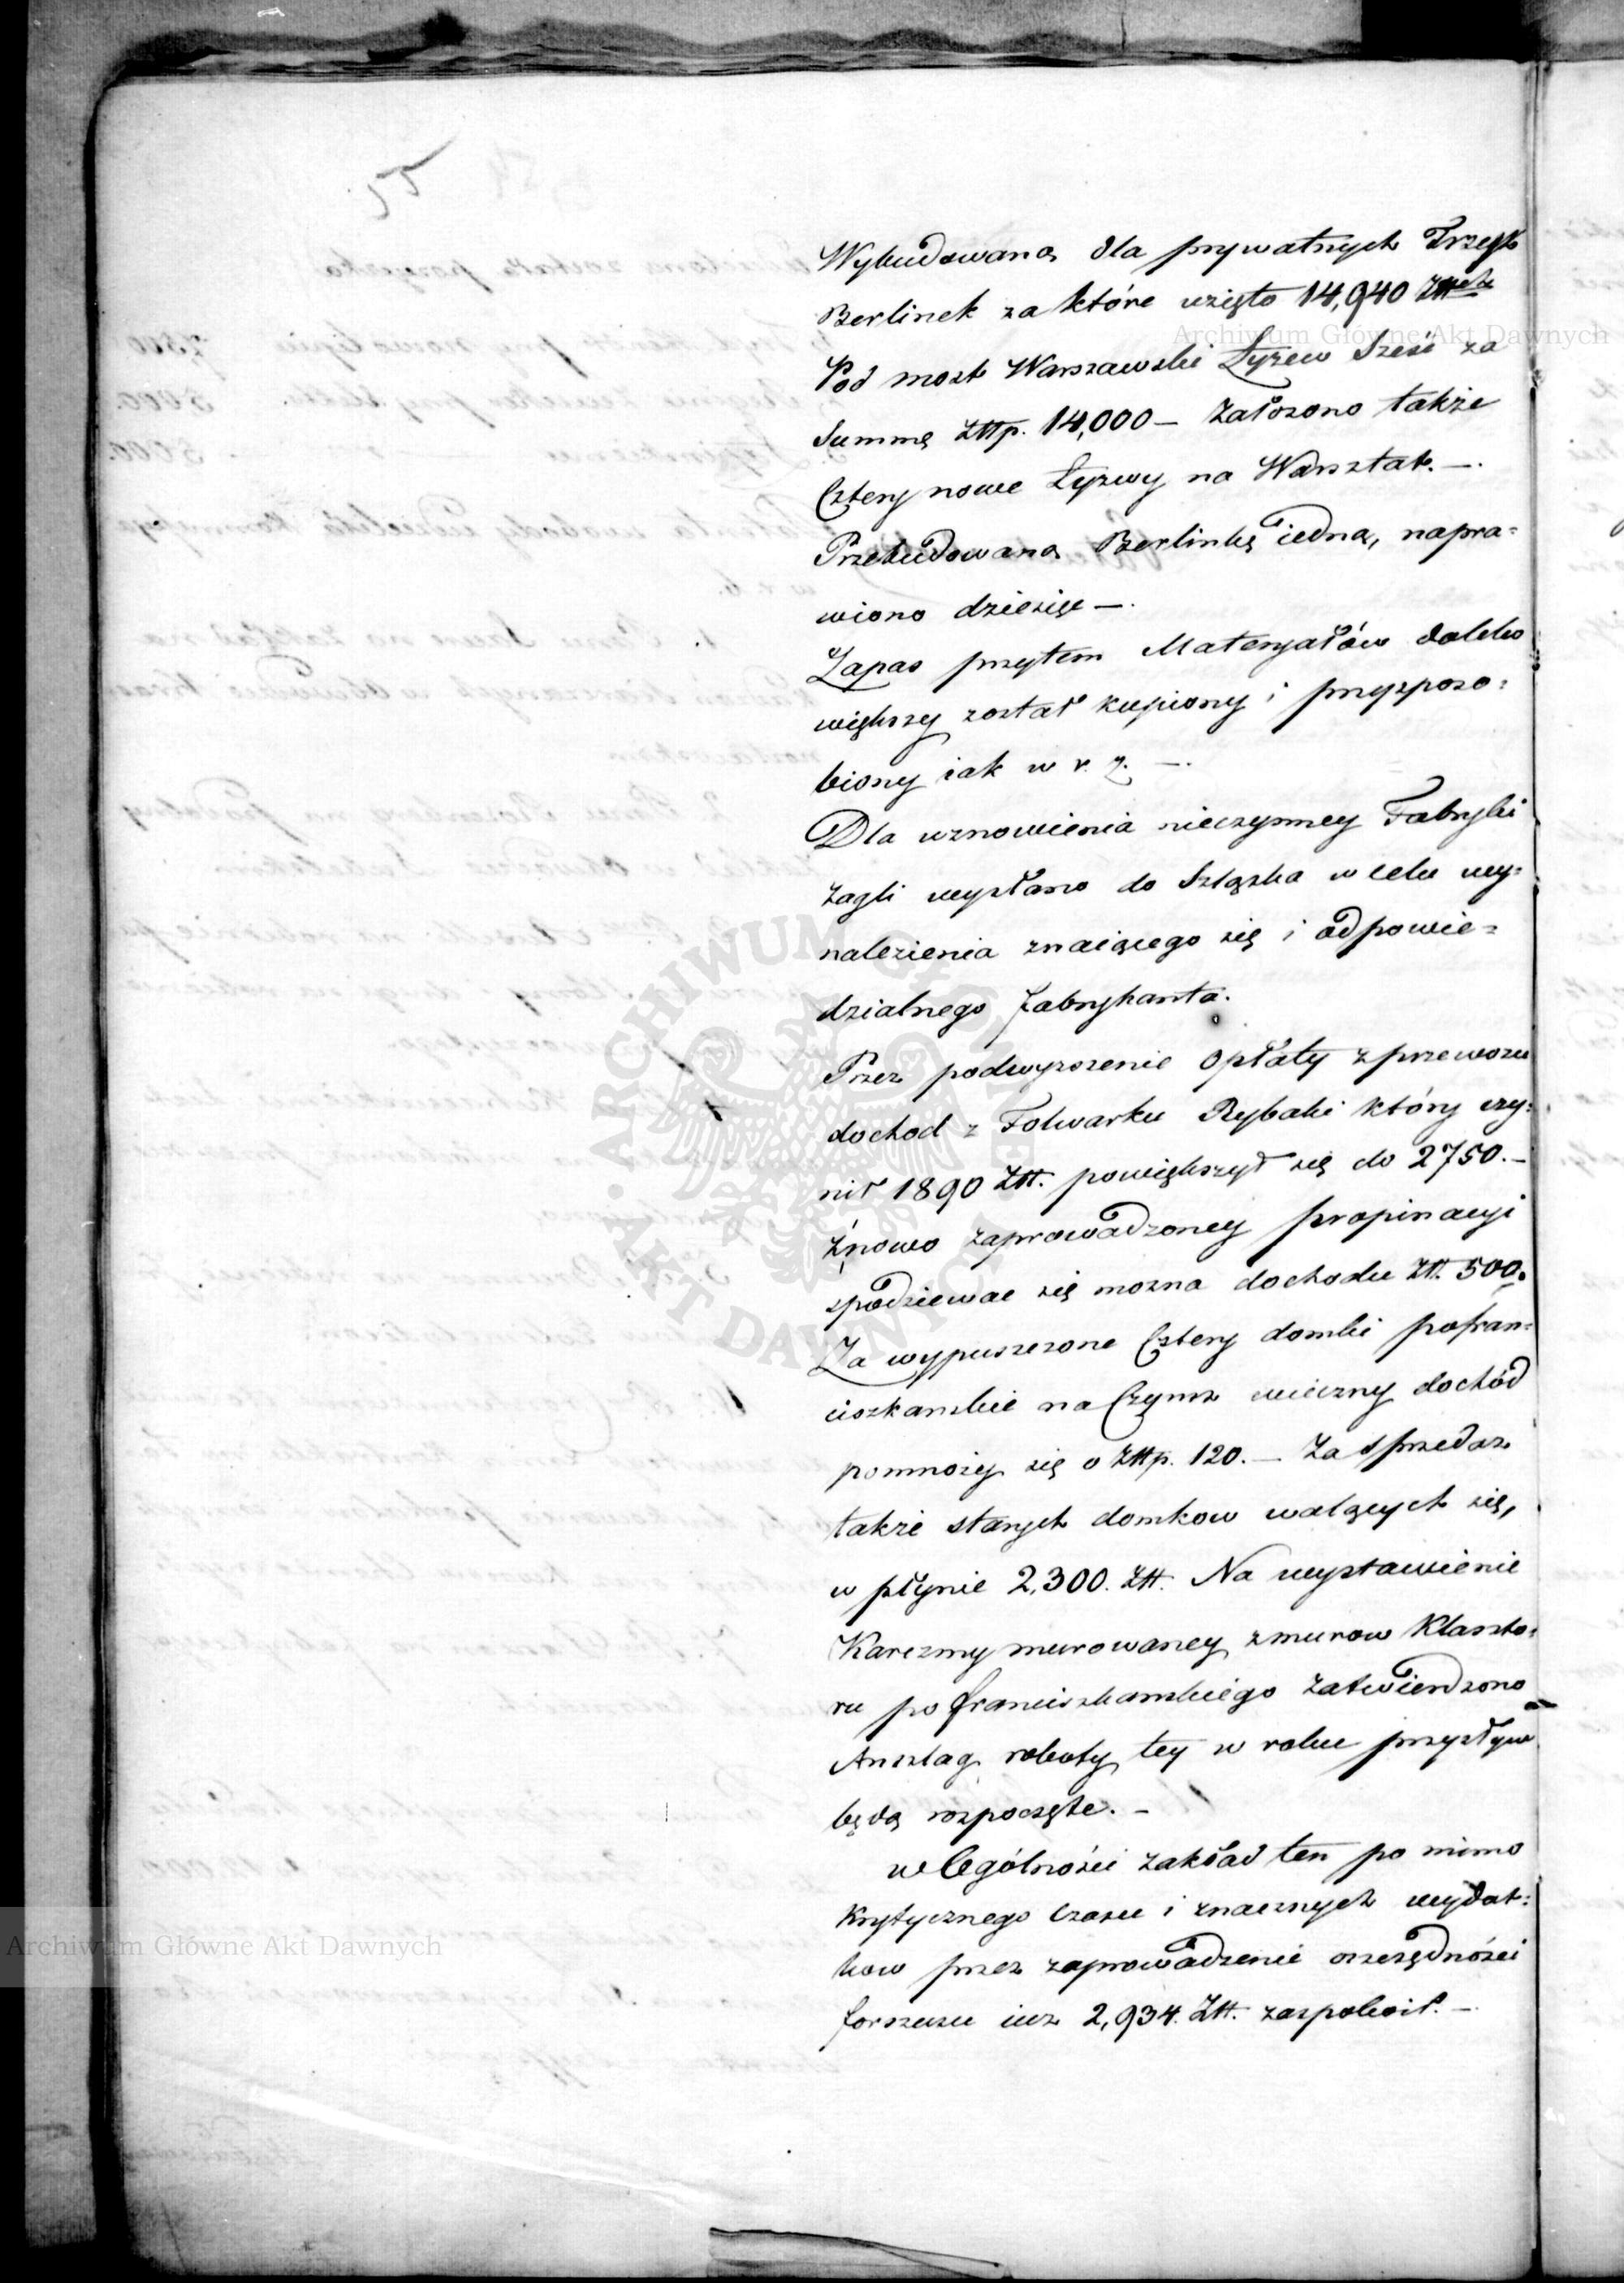 55.
Wybudowano dla prywatnych Trzech
Berlinek za które wzięto 14,940 Złłch
Pod most Warszawski Łyżew Sześć za
Summę Złłp. 14,000 — Założono także
Cztery nowe Łyżwy na Warsztat. —.
Przebudowano Berlinkę iedną, napra=
wiono dziesięć —.
Zapas przytem Materyałów daleko
większy został kupiony i przysposo=
biony iak w r. z. —.
Dla wznowienia nieczynney Fabryki
żagli wysłano do Szląska w celu wy=
nalezienia znaiącego się i odpowie=
dzialnego fabrykanta.
Przez podwyższenie opłaty z przewozu
dochod z Folwarku Rybaki który czy=
nił 1890 Złł. powiększył się do 2750. —
Z nowo zaprowadzoney propinacyi
spodziewać się można dochodu Złł. 500.
Za wypuszczone Cztery domki pofran=
ciszkańskie na Czynsz wieczny dochód
pomnoży się o Złłp. 120. — Za sprzedaż
także starych domkow walących się,
wpłynie 2,300. Złł. Na wystawienie
Karczmy murowaney z murow Klaszto=
ru po franciszkańskiego zatwierdzono
Anszlag roboty tey w roku przyszłym
będą rozpoczęte. —
w Ogólności zakład ten po mimo
krytycznego czasu i znacznych wydat=
kow przez zaprowadzenie oszczędności
forszusu iuż 2,934. Złł. zaspokoił. —
Archiwum Główne Akt Dawnych
Archiwum Główne Akt Dawnych
ARCHIWUM GŁÓWNE AKT DAWNYCH